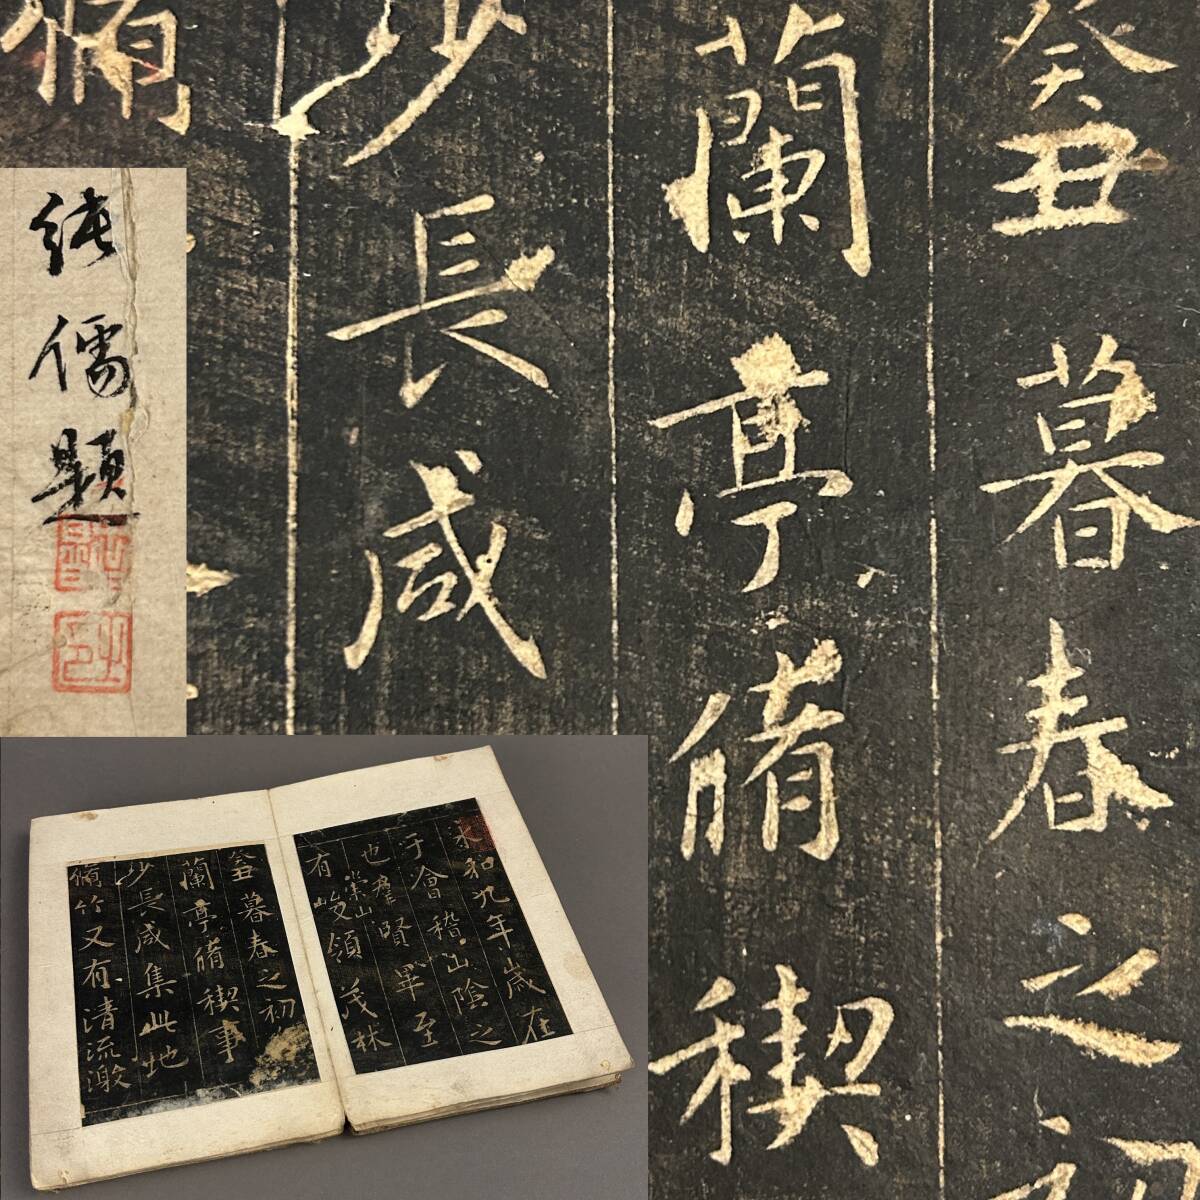 癸丑暮春之初
蘭亭脩稧
少長咸
脩
繼儒題
永和九年歲在
于會稽山陰之
也羣賢畢至
崇山
有峻領茂林
癸丑暮春之初
蘭亭脩稧事
少長咸集此地
脩竹又有清流激